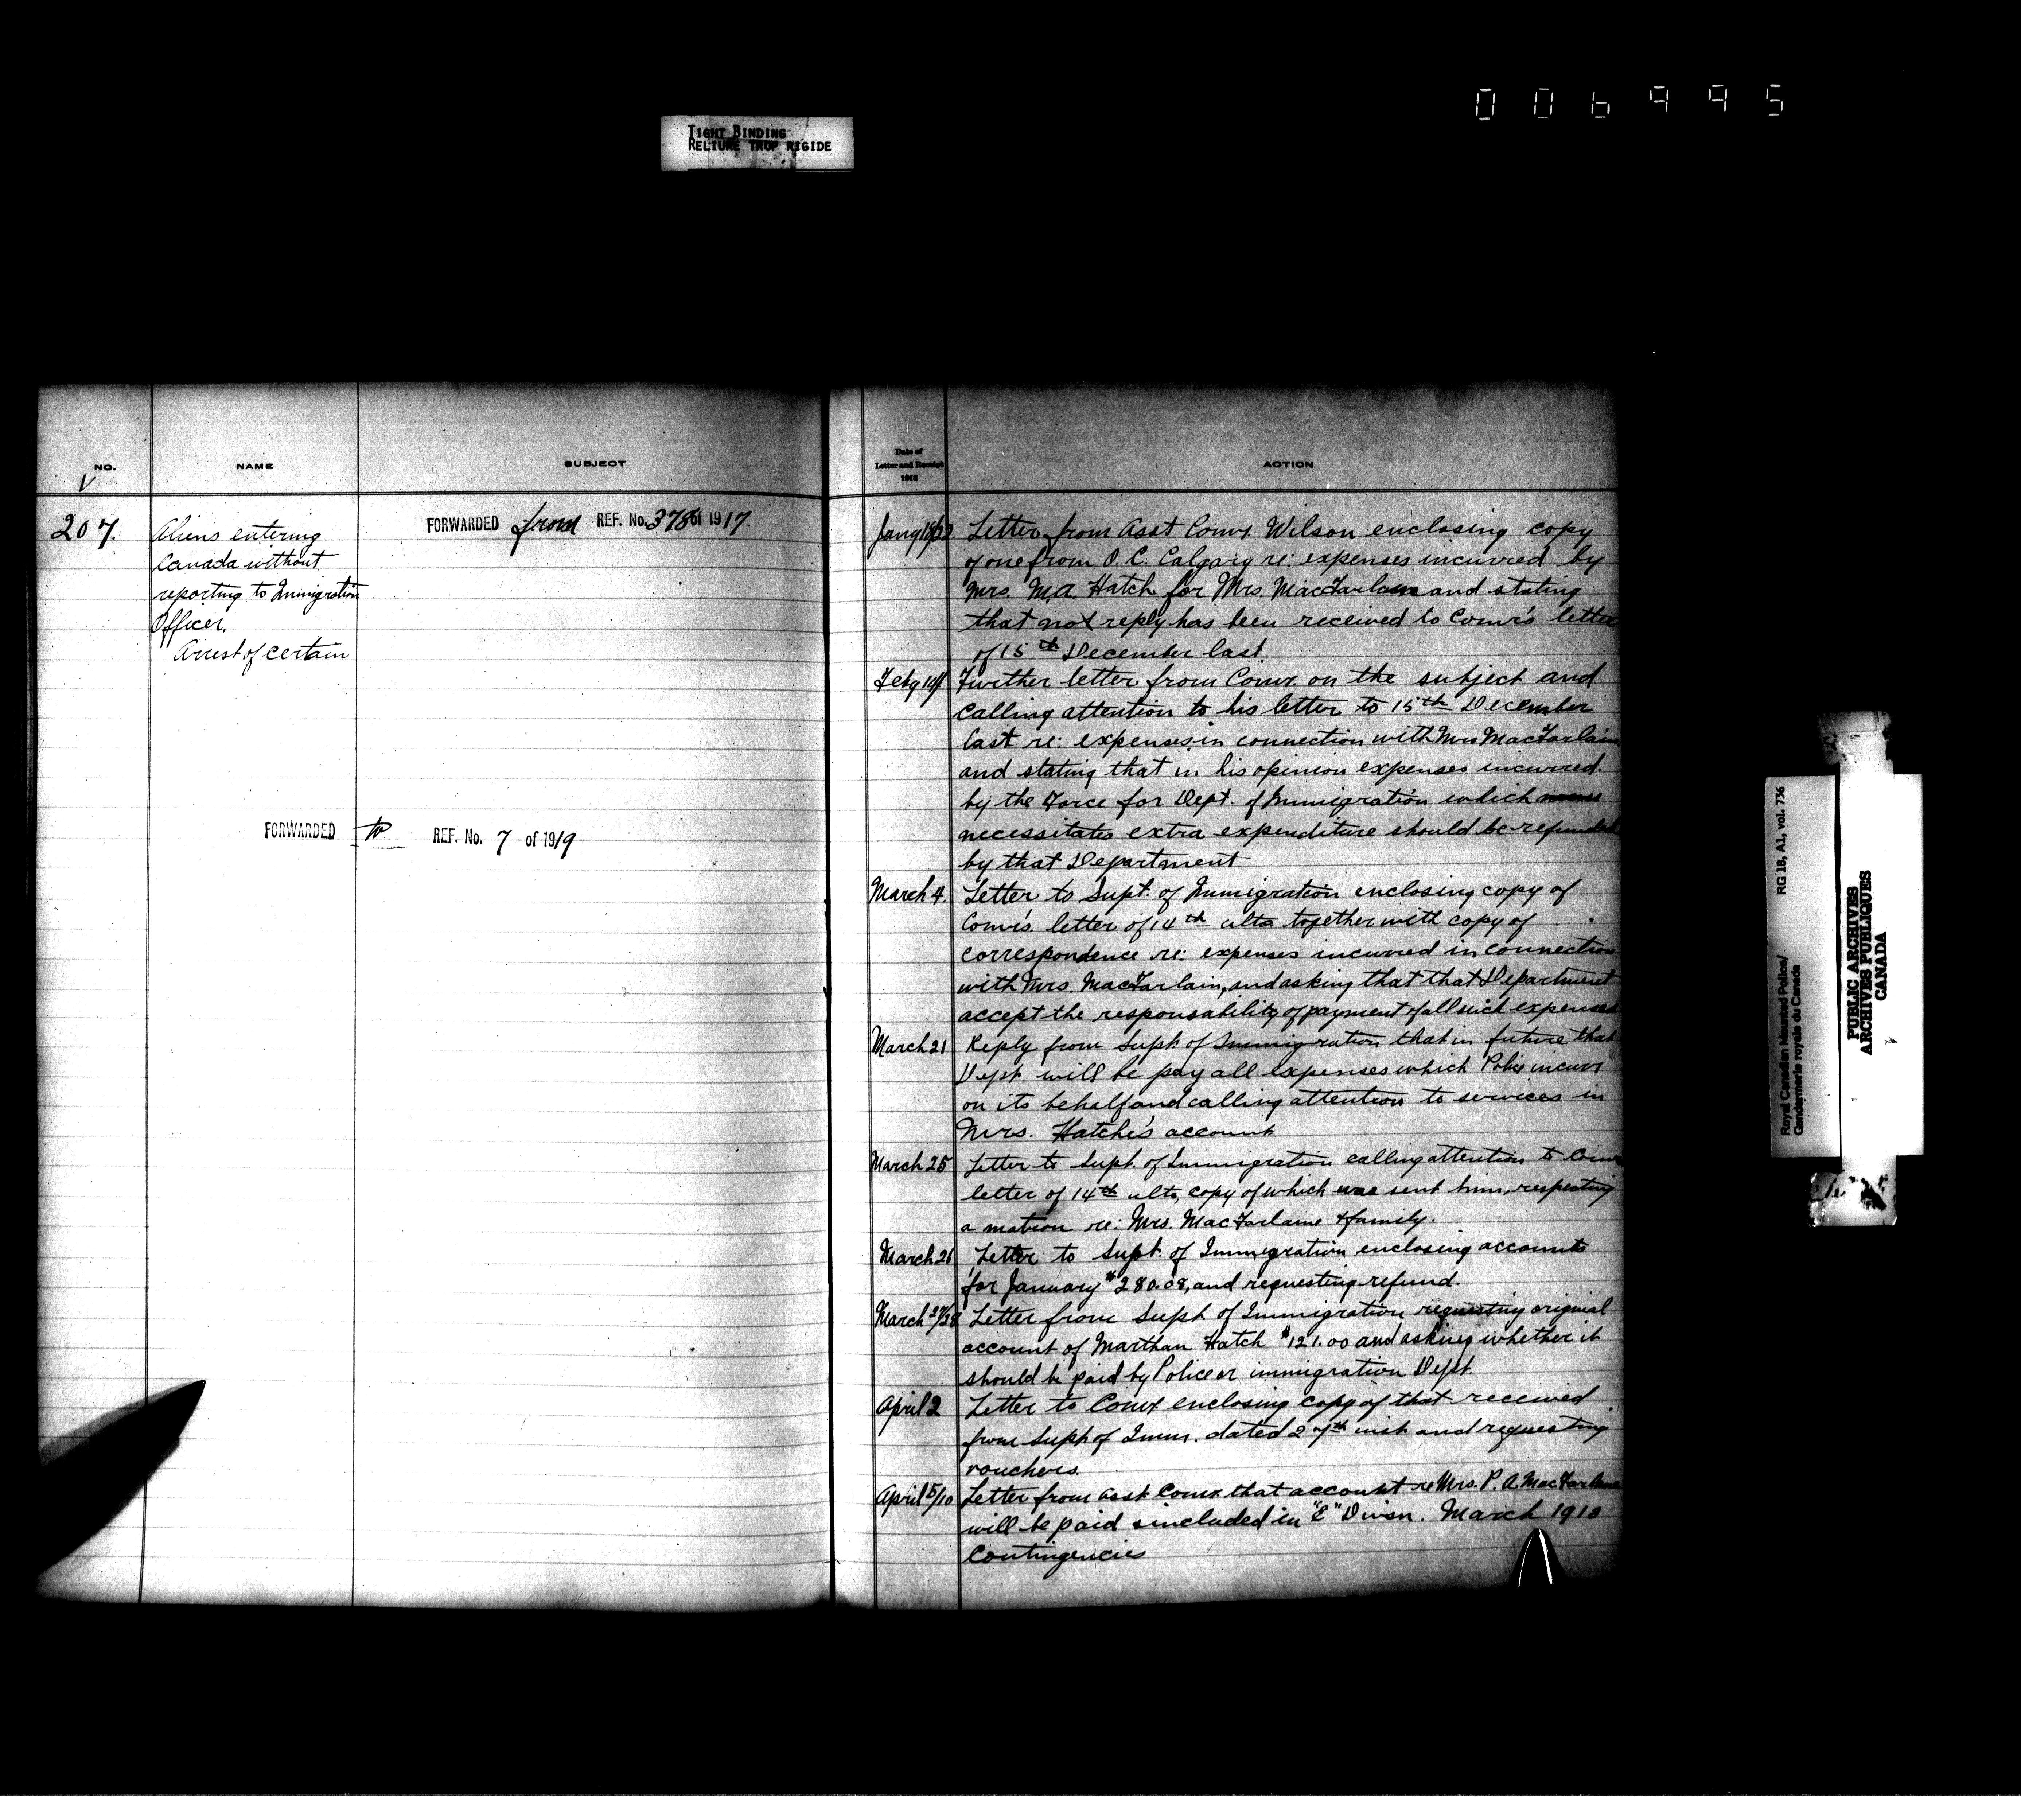 006995
TIGHT BINDING
RELIURE TROP RIGIDE
NO.
NAME
SUBJECT
V
207.
Aliens entering
Canada without
reporting to Immigration
Officer.
Arrest of certain
FORWARDED from REF. No. 378 of 1917.
FORWARDED to REF. No. 7 of 1919
Date of
Letter and Receipt
1918
ACTION
Letter from Asst Comr. Wilson enclosing copy
of one from O.C. Calgary re: expenses incurred by
Mrs. M.A. Hatch for Mrs. MacFarlane and stating
that not reply has been received to Comr's letter
of 15th December last.
Feby 14 Further letter from Comr. on the subject and
calling attention to his letter to 15th December
last re: expenses in connection with Mrs MacFarlain
and stating that in his opinion expenses incurred
by the Force for Dept. of Immigration which
necessitates extra expenditure should be refunded
by that Department
March 4. Letter to Supt. of Immigration enclosing copy of
Comr's. letter of 14th ulto together with copy of
correspondence re: expenses incurred in connection
with Mrs. MacFarlain, and asking that that Department
accept the responsability of payment of all such expenses
March 21 Reply from Supt. of Immigration that in future that
Dept. will be pay all expenses which Police incurr
on its behalf and calling attention to services in
Mrs. Hatche's account
March 25 Letter to Supt. of Immigration calling attention to Comrs
letter of 14th ulto, copy of which was sent him, respecting
a motion re: Mrs. MacFarlaine & family.
March 26 Letter to Supt. of Immigration enclosing accounts
for January $280.08, and requesting refund.
March 27/28 Letter from Supt of Immigration requesting original
account of Marthan Hatch $121.00 and asking whether it
should be paid by Police or immigration Dept.
April 2 Letter to Comr enclosing copy of that received
from Supt of Imm. dated 27th inst and requesting
vouchers.
April 5/10 Letter from Asst Comr. that account re Mrs. P. A. MacFarlane
will be paid & included in "E" Divsn. March 1918
Contingencies
Royal Canadian Mounted Police/
Gendarmerie royale du Canada
RG 18, A1, vol. 736
PUBLIC ARCHIVES
ARCHIVES PUBLIQUES
CANADA